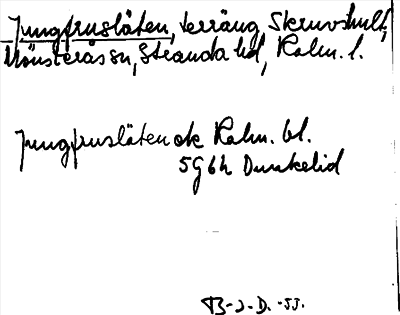 Jungfrusläten, terräng, Skruvshult,
Mönsterås sn, Stranda hd, Kalm. l.
Jungfrusläten ek Kalm. bl.
5G6h Dunkelid
TB-2-D.-55.